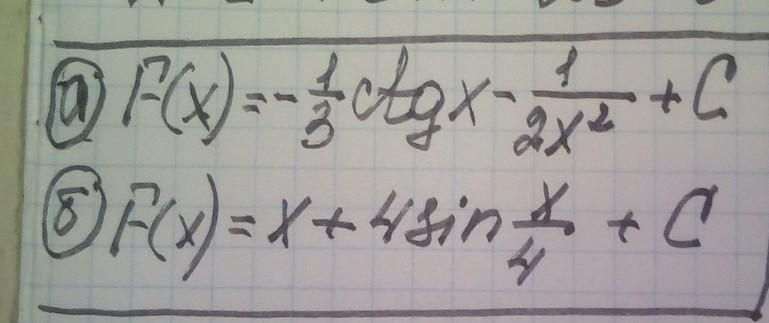 а) F(x) = -1/3 ctg x - 1/2x² + C
б) F(x) = x + 4 sin x/4 + C